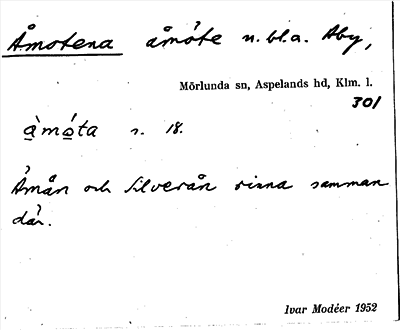 Åmotena åmóte n. bl. a. Åby,
Mörlunda sn, Aspelands hd, Klm. l.
301
å̀mo̲ta s. 18.
Åmån och Silverån rinna samman
där.
Ivar Modéer 1952